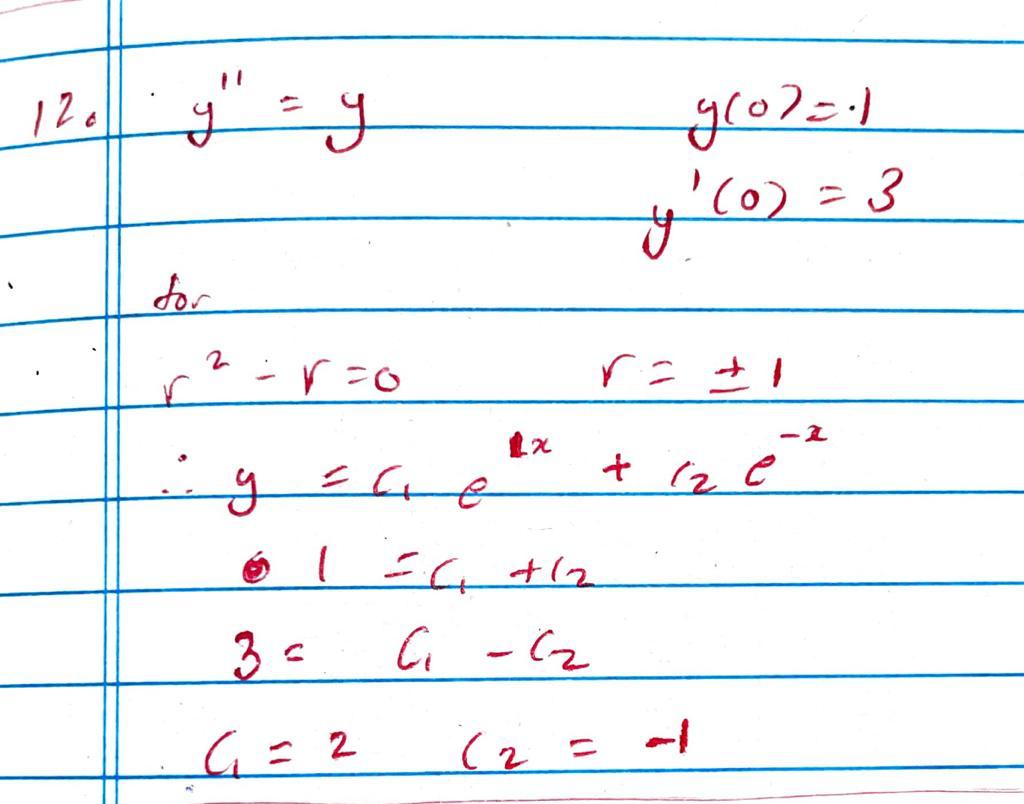 12. y'' = y y(0) = 1
y'(0) = 3
for
r² - r = 0 r = ± 1
∴ y = C₁ e^{1x} + C₂ e^{-x}
1 = C₁ + C₂
3 = C₁ - C₂
C₁ = 2 C₂ = -1